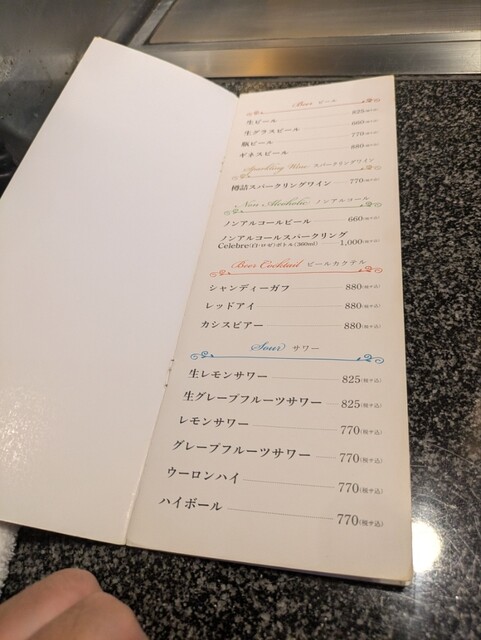 Beer ビール
生ビール 825(税サ込)
生グラスビール 660(税サ込)
瓶ビール 770(税サ込)
ギネスビール 880(税サ込)
Sparkling Wine スパークリングワイン
樽詰スパークリングワイン 770(税サ込)
Non Alcoholic ノンアルコール
ノンアルコールビール 660(税サ込)
ノンアルコールスパークリング
Celebre(白・ロゼ)ボトル(360ml) 1,000(税サ込)
Beer Cocktail ビールカクテル
シャンディーガフ 880(税サ込)
レッドアイ 880(税サ込)
カシスビアー 880(税サ込)
Sour サワー
生レモンサワー 825(税サ込)
生グレープフルーツサワー 825(税サ込)
レモンサワー 770(税サ込)
グレープフルーツサワー 770(税サ込)
ウーロンハイ 770(税サ込)
ハイボール 770(税サ込)